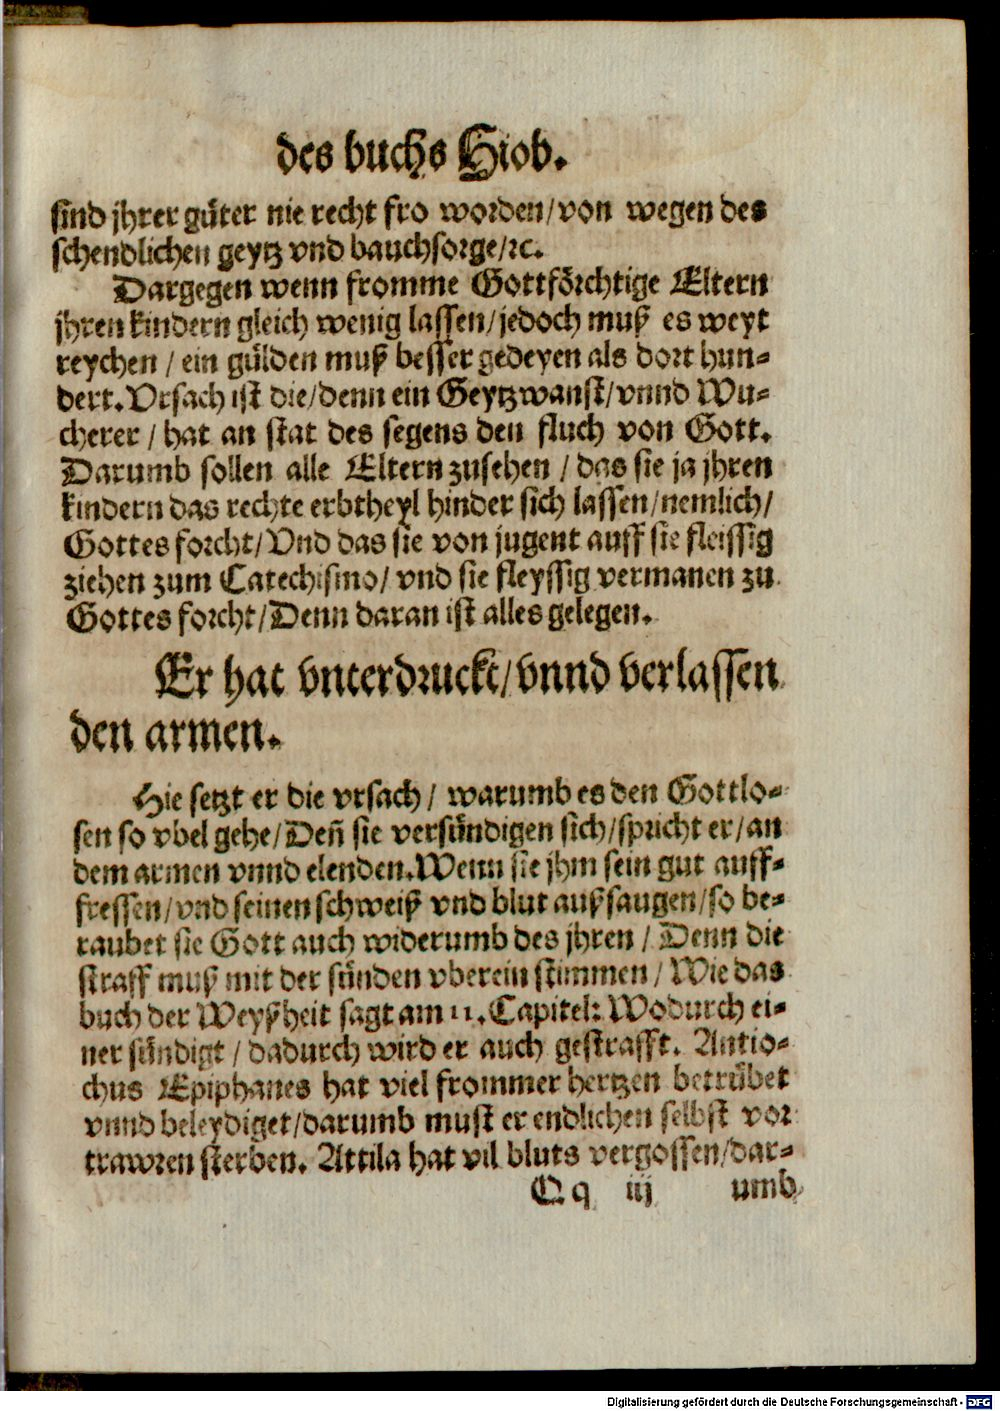 des buchs Hiob.
sind jhrer güter nie recht fro worden/von wegen des
schendlichen geytz vnd bauchsorge/ꝛc.
Dargegen wenn fromme Gottförchtige Eltern
jhren kindern gleich wenig lassen/jedoch muß es weyt
reychen / ein gülden muß besser gedeyen als dort hun-
dert. Vrsach ist die/denn ein Geytzwanst/vnnd Wu-
cherer / hat an stat des segens den fluch von Gott.
Darumb sollen alle Eltern zusehen / das sie ja jhren
kindern das rechte erbtheyl hinder sich lassen/nemlich/
Gottes forcht/Vnd das sie von jugent auff sie fleissig
ziehen zum Catechismo/ vnd sie fleyssig vermanen zu
Gottes forcht/Denn daran ist alles gelegen.
Er hat vnterdruckt/vnnd verlassen
den armen.
Hie setzt er die vrsach / warumb es den Gottlo-
sen so vbel gehe/Deñ sie versündigen sich/spricht er/an
dem armen vnnd elenden. Wenn sie jhm sein gut auff-
fressen/vnd seinen schweiß vnd blut außsaugen/so be-
raubet sie Gott auch widerumb des jhren / Denn die
straff muß mit der sünden vberein stimmen / Wie das
buch der Weyßheit sagt am 11. Capitel: Wodurch ei-
ner sündigt / dadurch wird er auch gestrafft. Antio-
chus Epiphanes hat viel frommer hertzen betrübet
vnnd beleydiget/darumb must er endlichen selbst vor
trawren sterben. Attila hat vil bluts vergossen/dar-
Qq iij umb
Digitalisierung gefördert durch die Deutsche Forschungsgemeinschaft - DFG